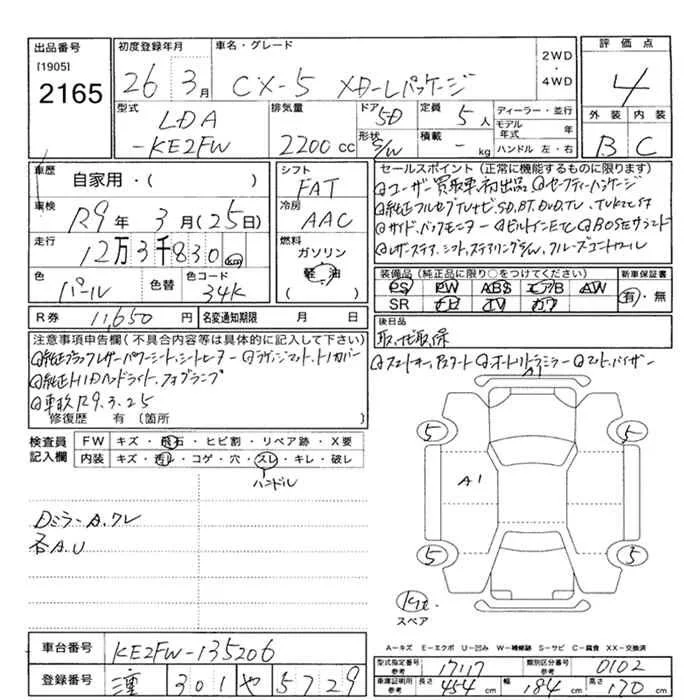 出品番号
[1905]
2165
初度登録年月
26 3月
車名・グレード
CX-5 XDーLパッケージ
2WD
・
4WD
評価点
4
外装 内装
B C
型式
LDA
-KE2FW
排気量
2200cc
ドア
5D
形状
S/W
定員
5人
積載
- kg
ディーラー・並行
モデル年式 年
ハンドル 左・右
車歴
自家用・( )
車検
R9年 3月(25日)
走行
12万3千830km
色
パール
色替
色コード
34K
シフト
FAT
冷房
AAC
燃料
ガソリン
軽油
( )
セールスポイント(正常に機能するものに限ります)
◎ユーザー買取車初出品 ◎セーフティーパッケージ
◎純正フルセグTVナビ,SD,BT,DVD,TV
◎サイド,バックモニター ◎ビルトインETC ◎BOSEサラウンド
◎レザーステア,シフト,ステアリングS/W,クルーズコントロール
装備品(純正品に限り○をつけてください)
PS PW ABS エアB AW
SR ナビ TV カワ
新車保証書
有・無
R券
11,650円
名変通知期限 月 日
後日品
取,ナビ取,保
注意事項申告欄(不具合内容等は具体的に記入して下さい)
◎純正ブラックレザーパワーシート,シートヒーター ◎ラゲッジマット,トノカバー
◎純正HIDヘッドライト,フォグランプ
◎車検R9.3.25
修復歴 有〔箇所 〕
◎スマートキー,Pスタート ◎オートリトラミラー ◎マット,バイザー
検査員
記入欄
FW キズ・飛石・ヒビ割・リペア跡・X要
内装 キズ・汚レ・コゲ・穴・スレ・キレ・破レ
ハンドル
Dミラー A.ワレ
各A.U
A1
5 5
A1
5 5
Kit.
スペア
A－キズ E－エクボ U－凹み W－補修跡 S－サビ C－腐食 XX－交換済
車台番号
KE2FW-135206
登録番号
301 や 5729
型式指定番号
参考
17117
類別区分番号
参考
0102
車庫証明用
参考
長さ 454cm 幅 184cm 高さ 170cm